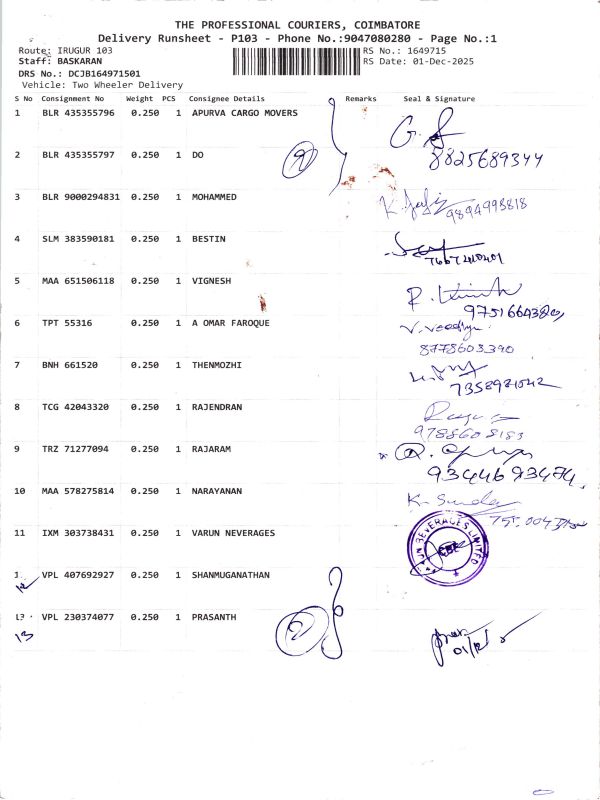 THE PROFESSIONAL COURIERS, COIMBATORE
Delivery Runsheet - P103 - Phone No.:9047080280 - Page No.:1
Route: IRUGUR 103
RS No.: 1649715
Staff: BASKARAN
RS Date: 01-Dec-2025
DRS No.: DCJB164971501
Vehicle: Two Wheeler Delivery
S No Consignment No Weight PCS Consignee Details Remarks Seal & Signature
1 BLR 435355796 0.250 1 APURVA CARGO MOVERS
2 BLR 435355797 0.250 1 DO
8825689344
3 BLR 9000294831 0.250 1 MOHAMMED
9894993818
4 SLM 383590181 0.250 1 BESTIN
5 MAA 651506118 0.250 1 VIGNESH
6 TPT 55316 0.250 1 A OMAR FAROQUE
8778603390
7 BNH 661520 0.250 1 THENMOZHI
8 TCG 42043320 0.250 1 RAJENDRAN
9788608183
9 TRZ 71277094 0.250 1 RAJARAM
9344693474
10 MAA 578275814 0.250 1 NARAYANAN
11 IXM 303738431 0.250 1 VARUN NEVERAGES
BEVERAGES LIMITED
CBE
12 VPL 407692927 0.250 1 SHANMUGANATHAN
13 VPL 230374077 0.250 1 PRASANTH
13